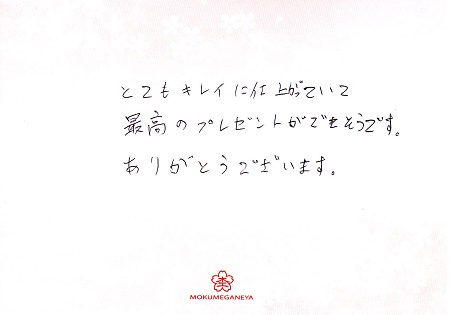 とてもキレイに仕上がっていて
最高のプレゼントができそうです。
ありがとうございます。
MOKUMEGANEYA